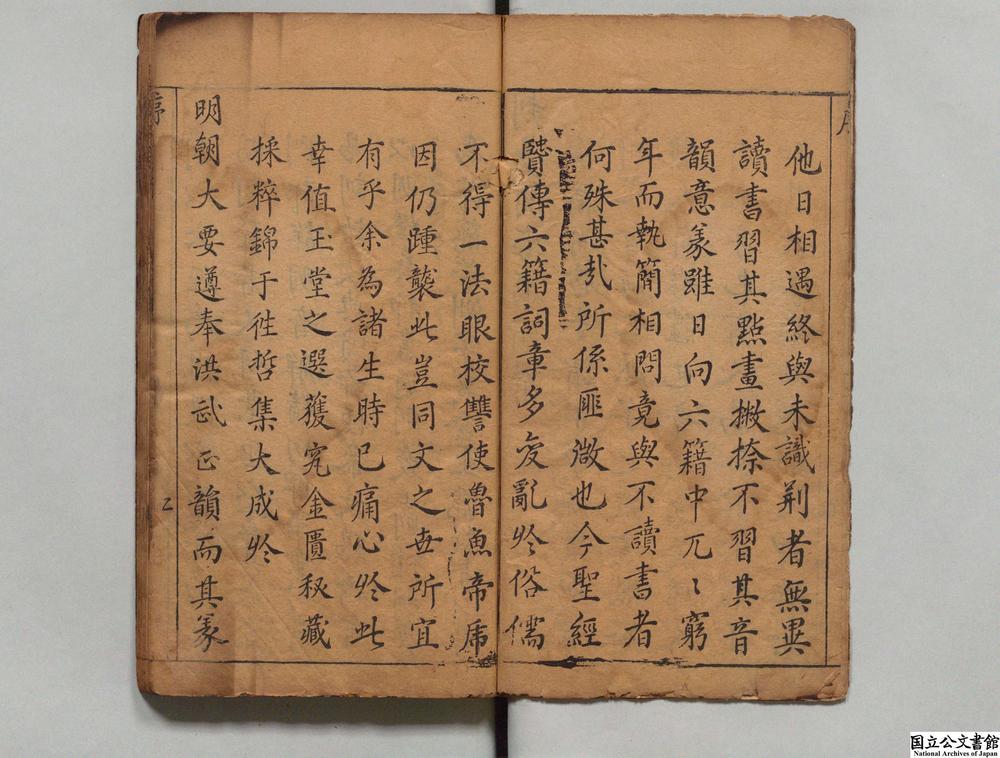 他日相遇終與未識荆者無異
讀書習其點畫撇捺不習其音
韻意篆雖日向六籍中兀〻窮
年而執簡相問竟與不讀書者
何殊甚㢤所係匪微也今聖經
賢傳六籍詞章多変亂於俗儒
不得一法眼校讐使魯魚帝虎
因仍踵襲此豈同文之世所宜
有乎余為諸生時已痛心於此
幸值玉堂之選獲究金匱秘藏
採粹錦于徃哲集大成於
明朝大要遵奉洪武正韻而其篆
序
二
国立公文書館
National Archives of Japan